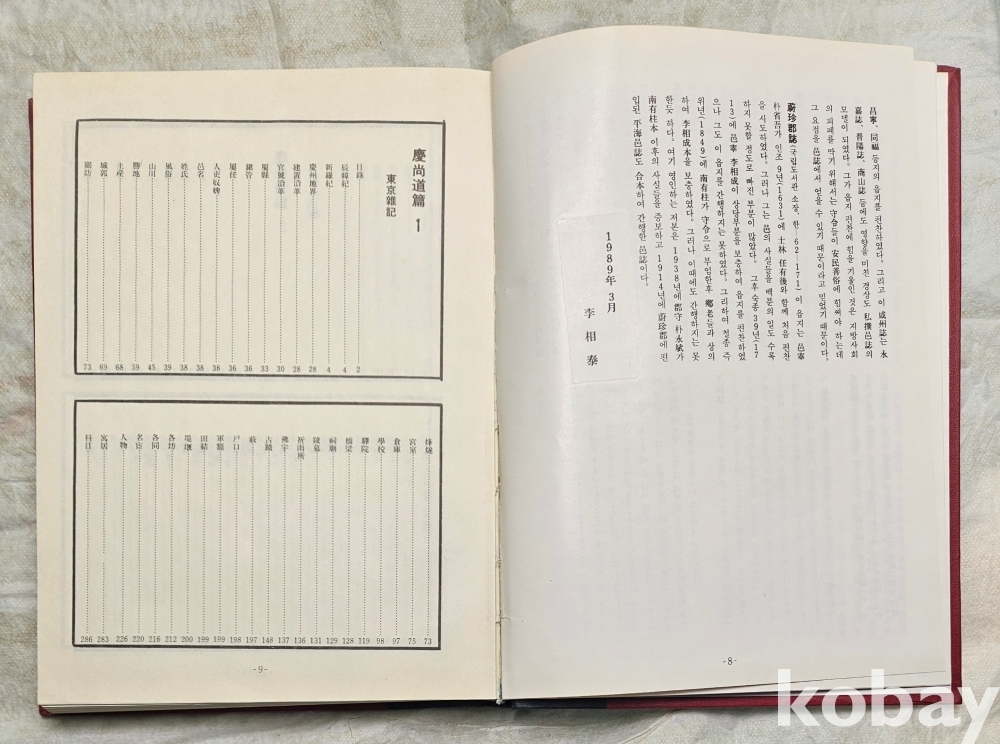 昌寧、同福 등지의 읍지를 편찬하였다. 그리고 이 咸州誌는 永
嘉誌、晋陽誌、商山誌 등에도 영향을 미친 경상도 私撰邑誌의
모델이 되었다. 그가 읍지 편찬에 힘을 기울인 것은 지방사회
의 피폐를 막기 위해서는 守令들이 安民善俗에 힘써야 하는데
그 요점을 邑誌에서 얻을 수 있기 때문이라고 믿었기 때문이다.
蔚珍郡誌(국립도서관 소장, 한 62—171) 이 읍지는 邑宰
朴省吾가 인조 9년(1631)에 士林 任有後와 함께 처음 편찬
을 시도하였다. 그러나 그는 邑의 사실들을 백분의 일도 수록
하지 못할 정도로 빠진 부분이 많았다. 그후 숙종 39년(17
13)에 邑宰 李相成이 상당부분을 보충하여 읍지를 편찬하였
으나 그도 이 읍지를 간행하지는 못하였다. 그리하여 철종 즉
위년(1849)에 南有柱가 守令으로 부임한후 鄕老들과 상의
하여 李相成本을 보충하였다. 그러나 이때에도 간행하지는 못
한듯 하다. 여기 영인하는 저본은 1938년에 郡守 朴永斌가
南有柱本 이후의 사실들을 증보하고 1914년에 蔚珍郡에 편
입된 平海邑誌도 合本하여 간행한 邑誌이다.
1989年 3月
李相泰
-8-
慶尚道篇 1
東京雜記
目錄 2
辰韓紀 4
新羅紀 4
慶州地界 28
建置沿革 28
官號沿革 30
屬縣 33
鎭管 36
屬任 36
人吏奴婢 38
邑名 38
姓氏 38
風俗 39
山川 45
勝地 59
土産 68
城郭 69
關防 73
烽燧 73
宮室 75
倉庫 97
學校 98
驛院 119
橋梁 128
祠廟 129
陵墓 131
祈雨所 136
佛宇 137
古蹟 148
藪 197
戶口 198
軍額 199
田結 199
堤堰 200
各坊 212
各同 216
名宦 220
人物 226
寓居 283
科目 286
-9-
kobay